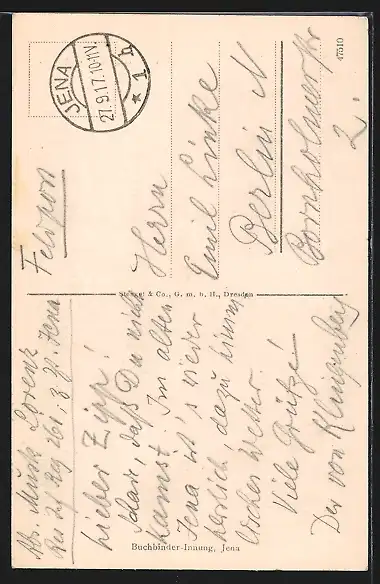 JENA
27.9.17.10-11V.
* 1 b
47510
Feldpost
Herrn
Emil Linke
Berlin N
Bornholmerstr
2.
Stengel & Co., G. m. b. H., Dresden
Abs. Musk. Lorenz
Res Inf Reg 261, z. Zt. Jena
Lieber Zipp!
Schade, daß Du nicht
kamst. Im alten
Jena ist's wieder
herrlich, dazu himm
lisches Wetter.
Viele Grüße!
Der von Klingenberg
Buchbinder-Innung, Jena